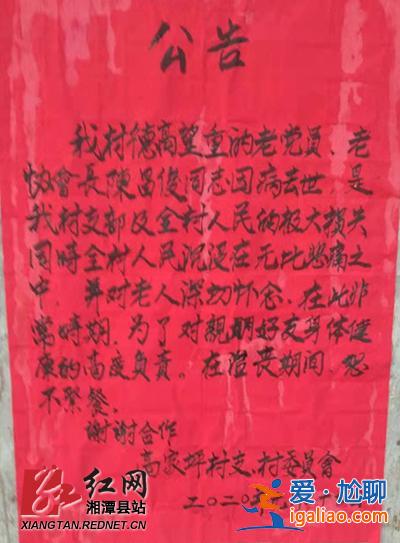 公告
我村德高望重的老党员、老
协會長陳昌俊同志因病去世,是
我村支部及全村人民的极大損失
同時全村人民沉浸在无比悲痛之
中,并对老人深切怀念、在此非
常時期,为了对親朋好友身体健
康的高度负责。在治丧期间,恕
不聚餐、
謝謝合作
高家坪村支、村委員會
二〇二〇年
红网
湘潭县站
XIANGTAN.REDNET.CN
爱·尬聊
igaliao.com